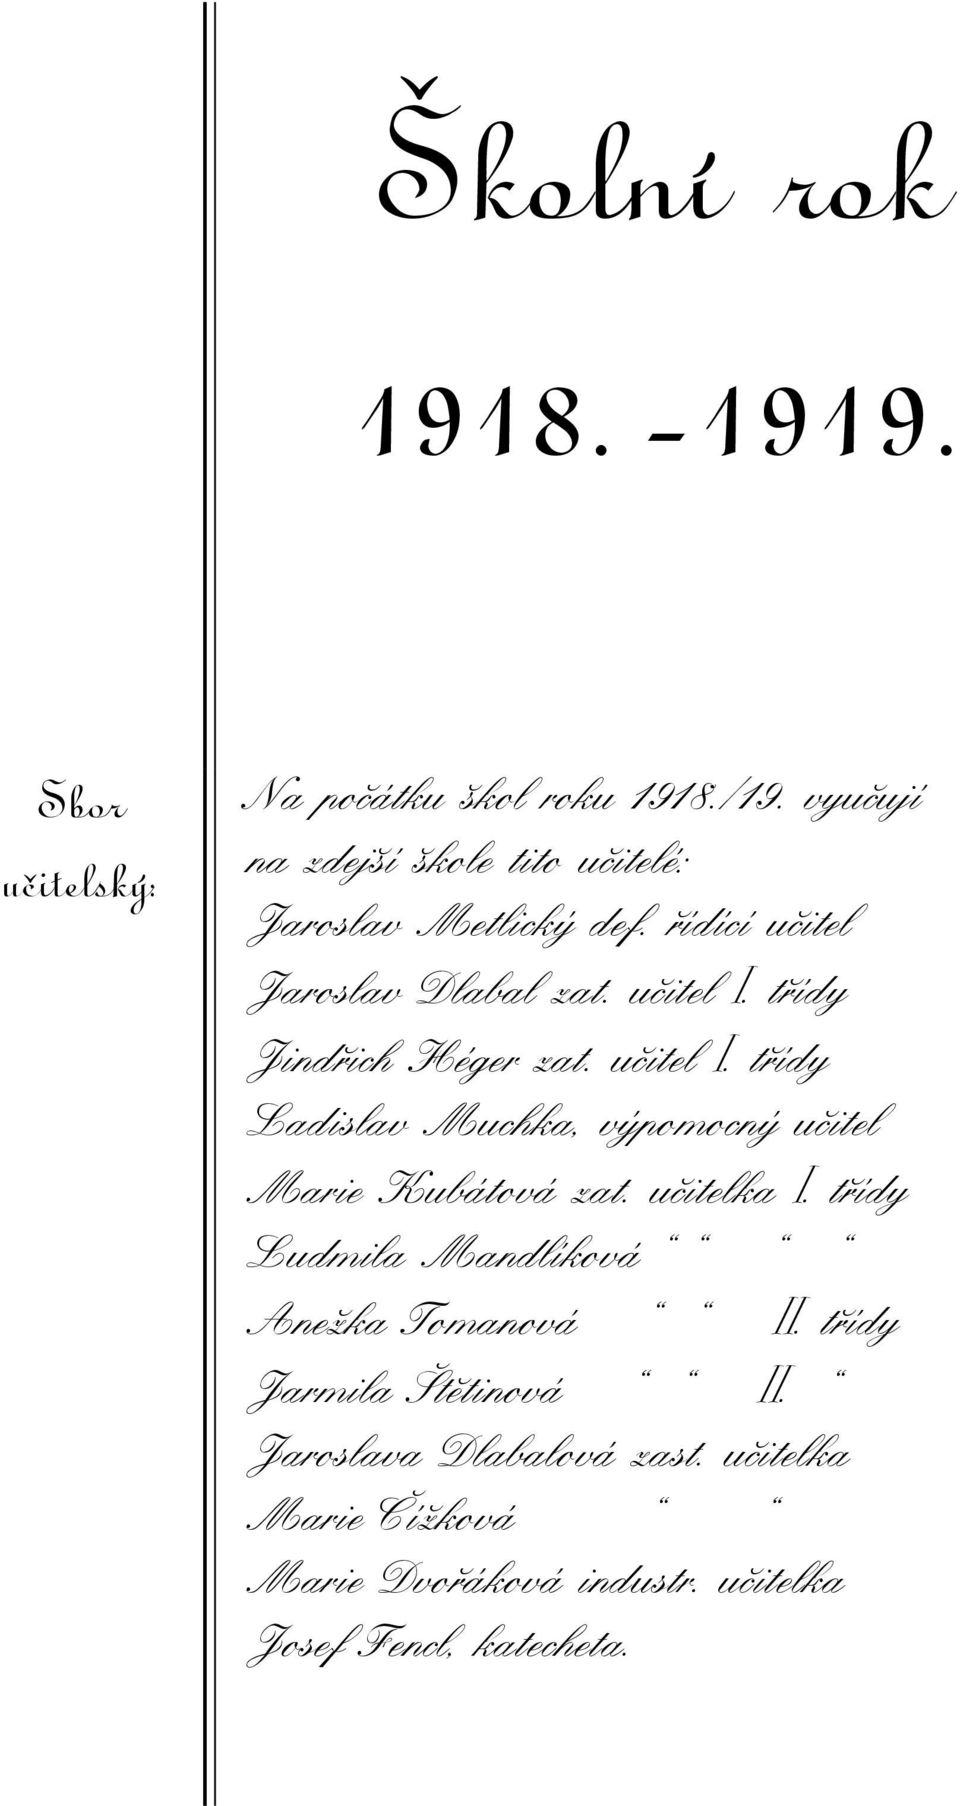 Školní rok
1918. -1919.
Sbor
učitelský:
Na počátku škol roku 1918./19. vyučují
na zdejší škole tito učitelé:
Jaroslav Metlický def. řídící učitel
Jaroslav Dlabal zat. učitel I. třídy
Jindřich Héger zat. učitel I. třídy
Ladislav Muchka, výpomocný učitel
Marie Kubátová zat. učitelka I. třídy
Ludmila Mandlíková “ “ “ “
Anežka Tomanová “ “ II. třídy
Jarmila Štětinová “ “ II. “
Jaroslava Dlabalová zast. učitelka
Marie Čížková “ “
Marie Dvořáková industr. učitelka
Josef Fencl, katecheta.